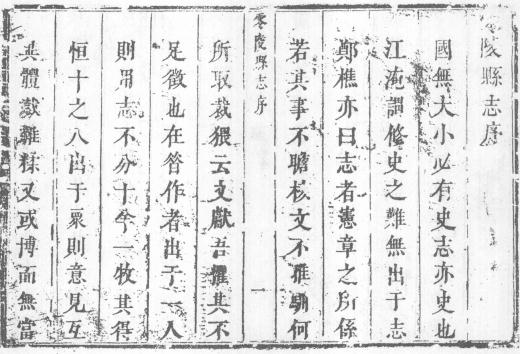 陵縣志序
國無大小必有史志亦史也
江淹謂修史之難無出于志
鄭樵亦曰志者憲章之所係
若其事不贍核文不雅馴何
零陵縣志序 一
所取裁猥云文獻吾懼其不
足徵也在昔作者出于一人
則用志不分十羊一牧其得
恒十之八出于眾則意見互
異體裁雜糅又或博而無當